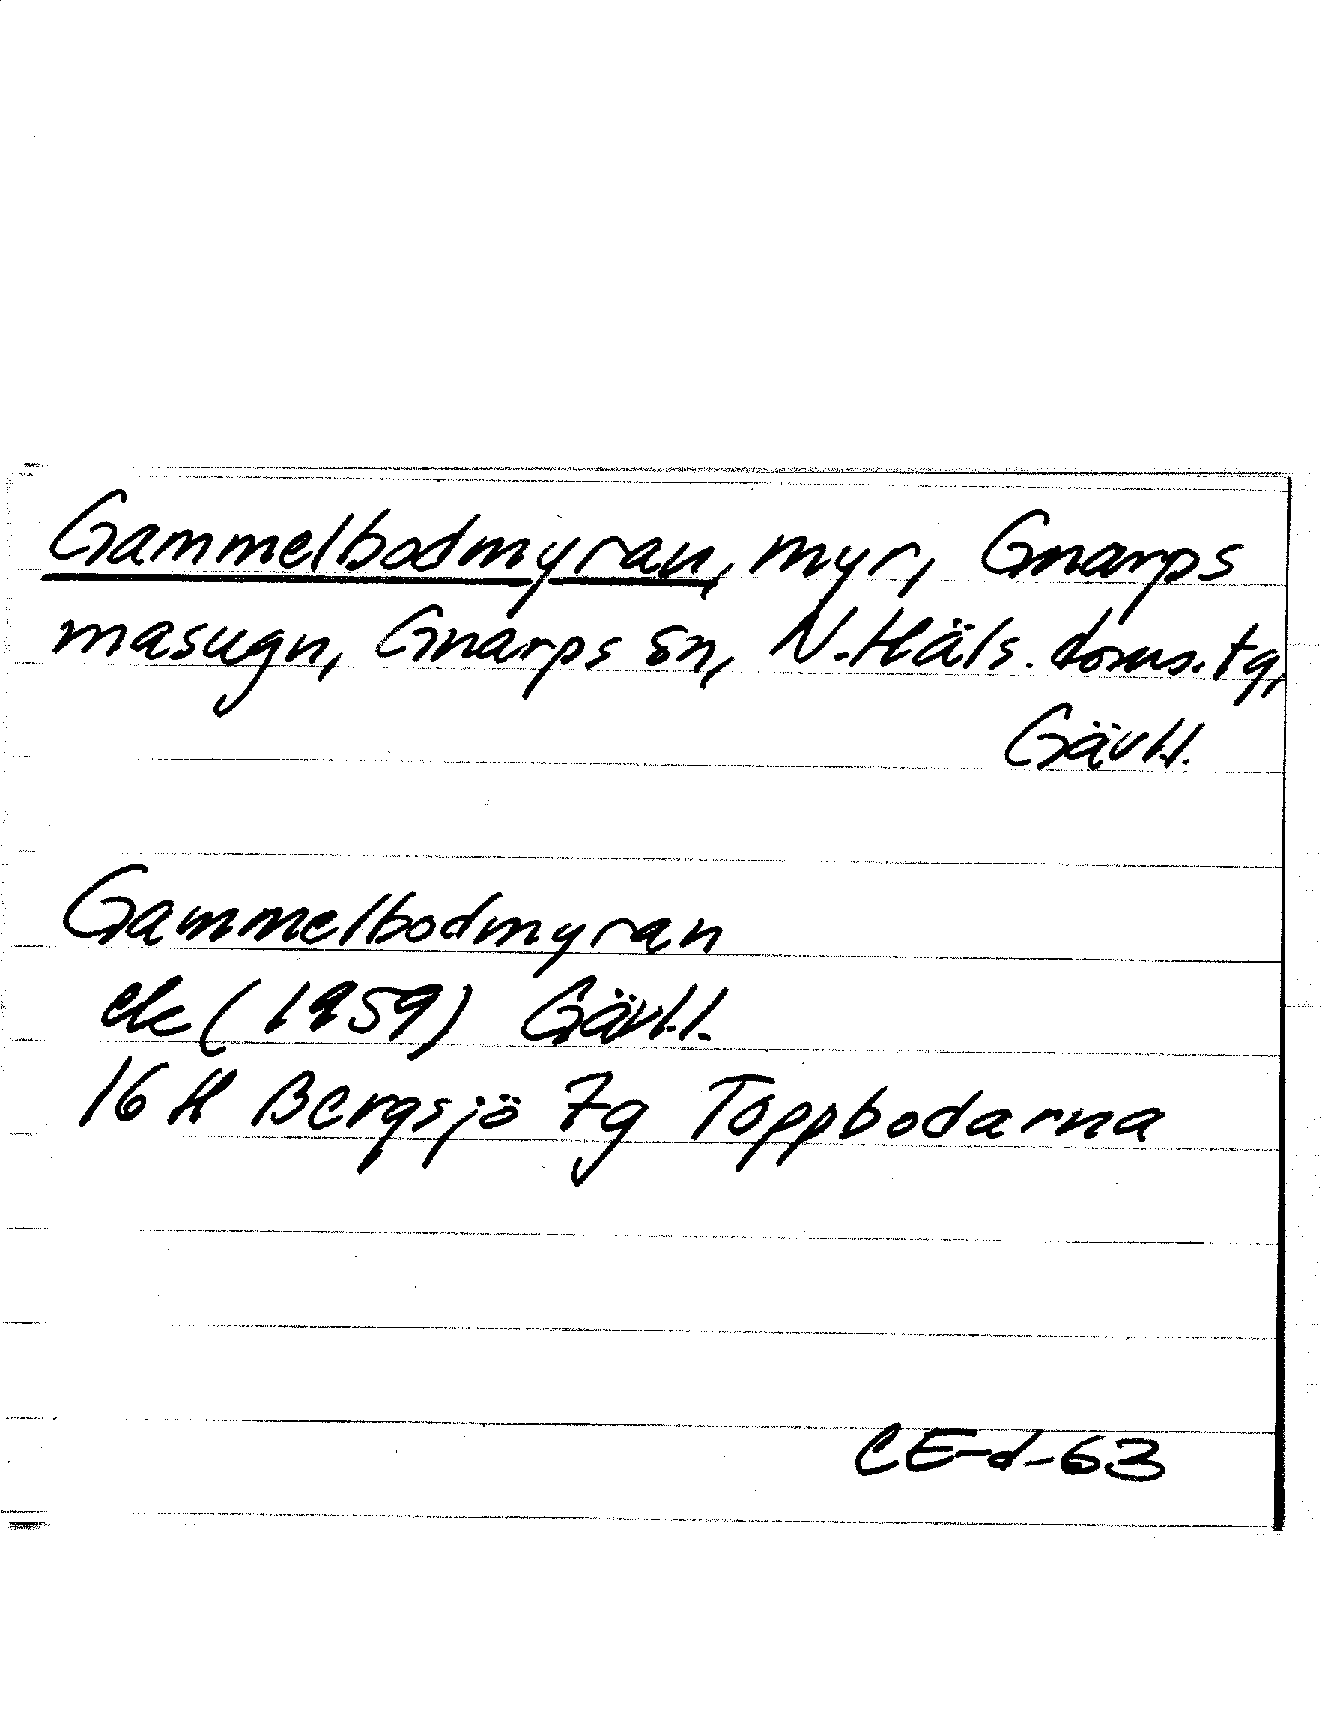 Gammelbodmyran, myr, Gnarps
masugn, Gnarps sn, N. Häls. doms. tg,
Gävl.l.
Gammelbodmyran
ek (1959) Gävl.l.
16 H Bergsjö 7g Toppbodarna
CE-d-63